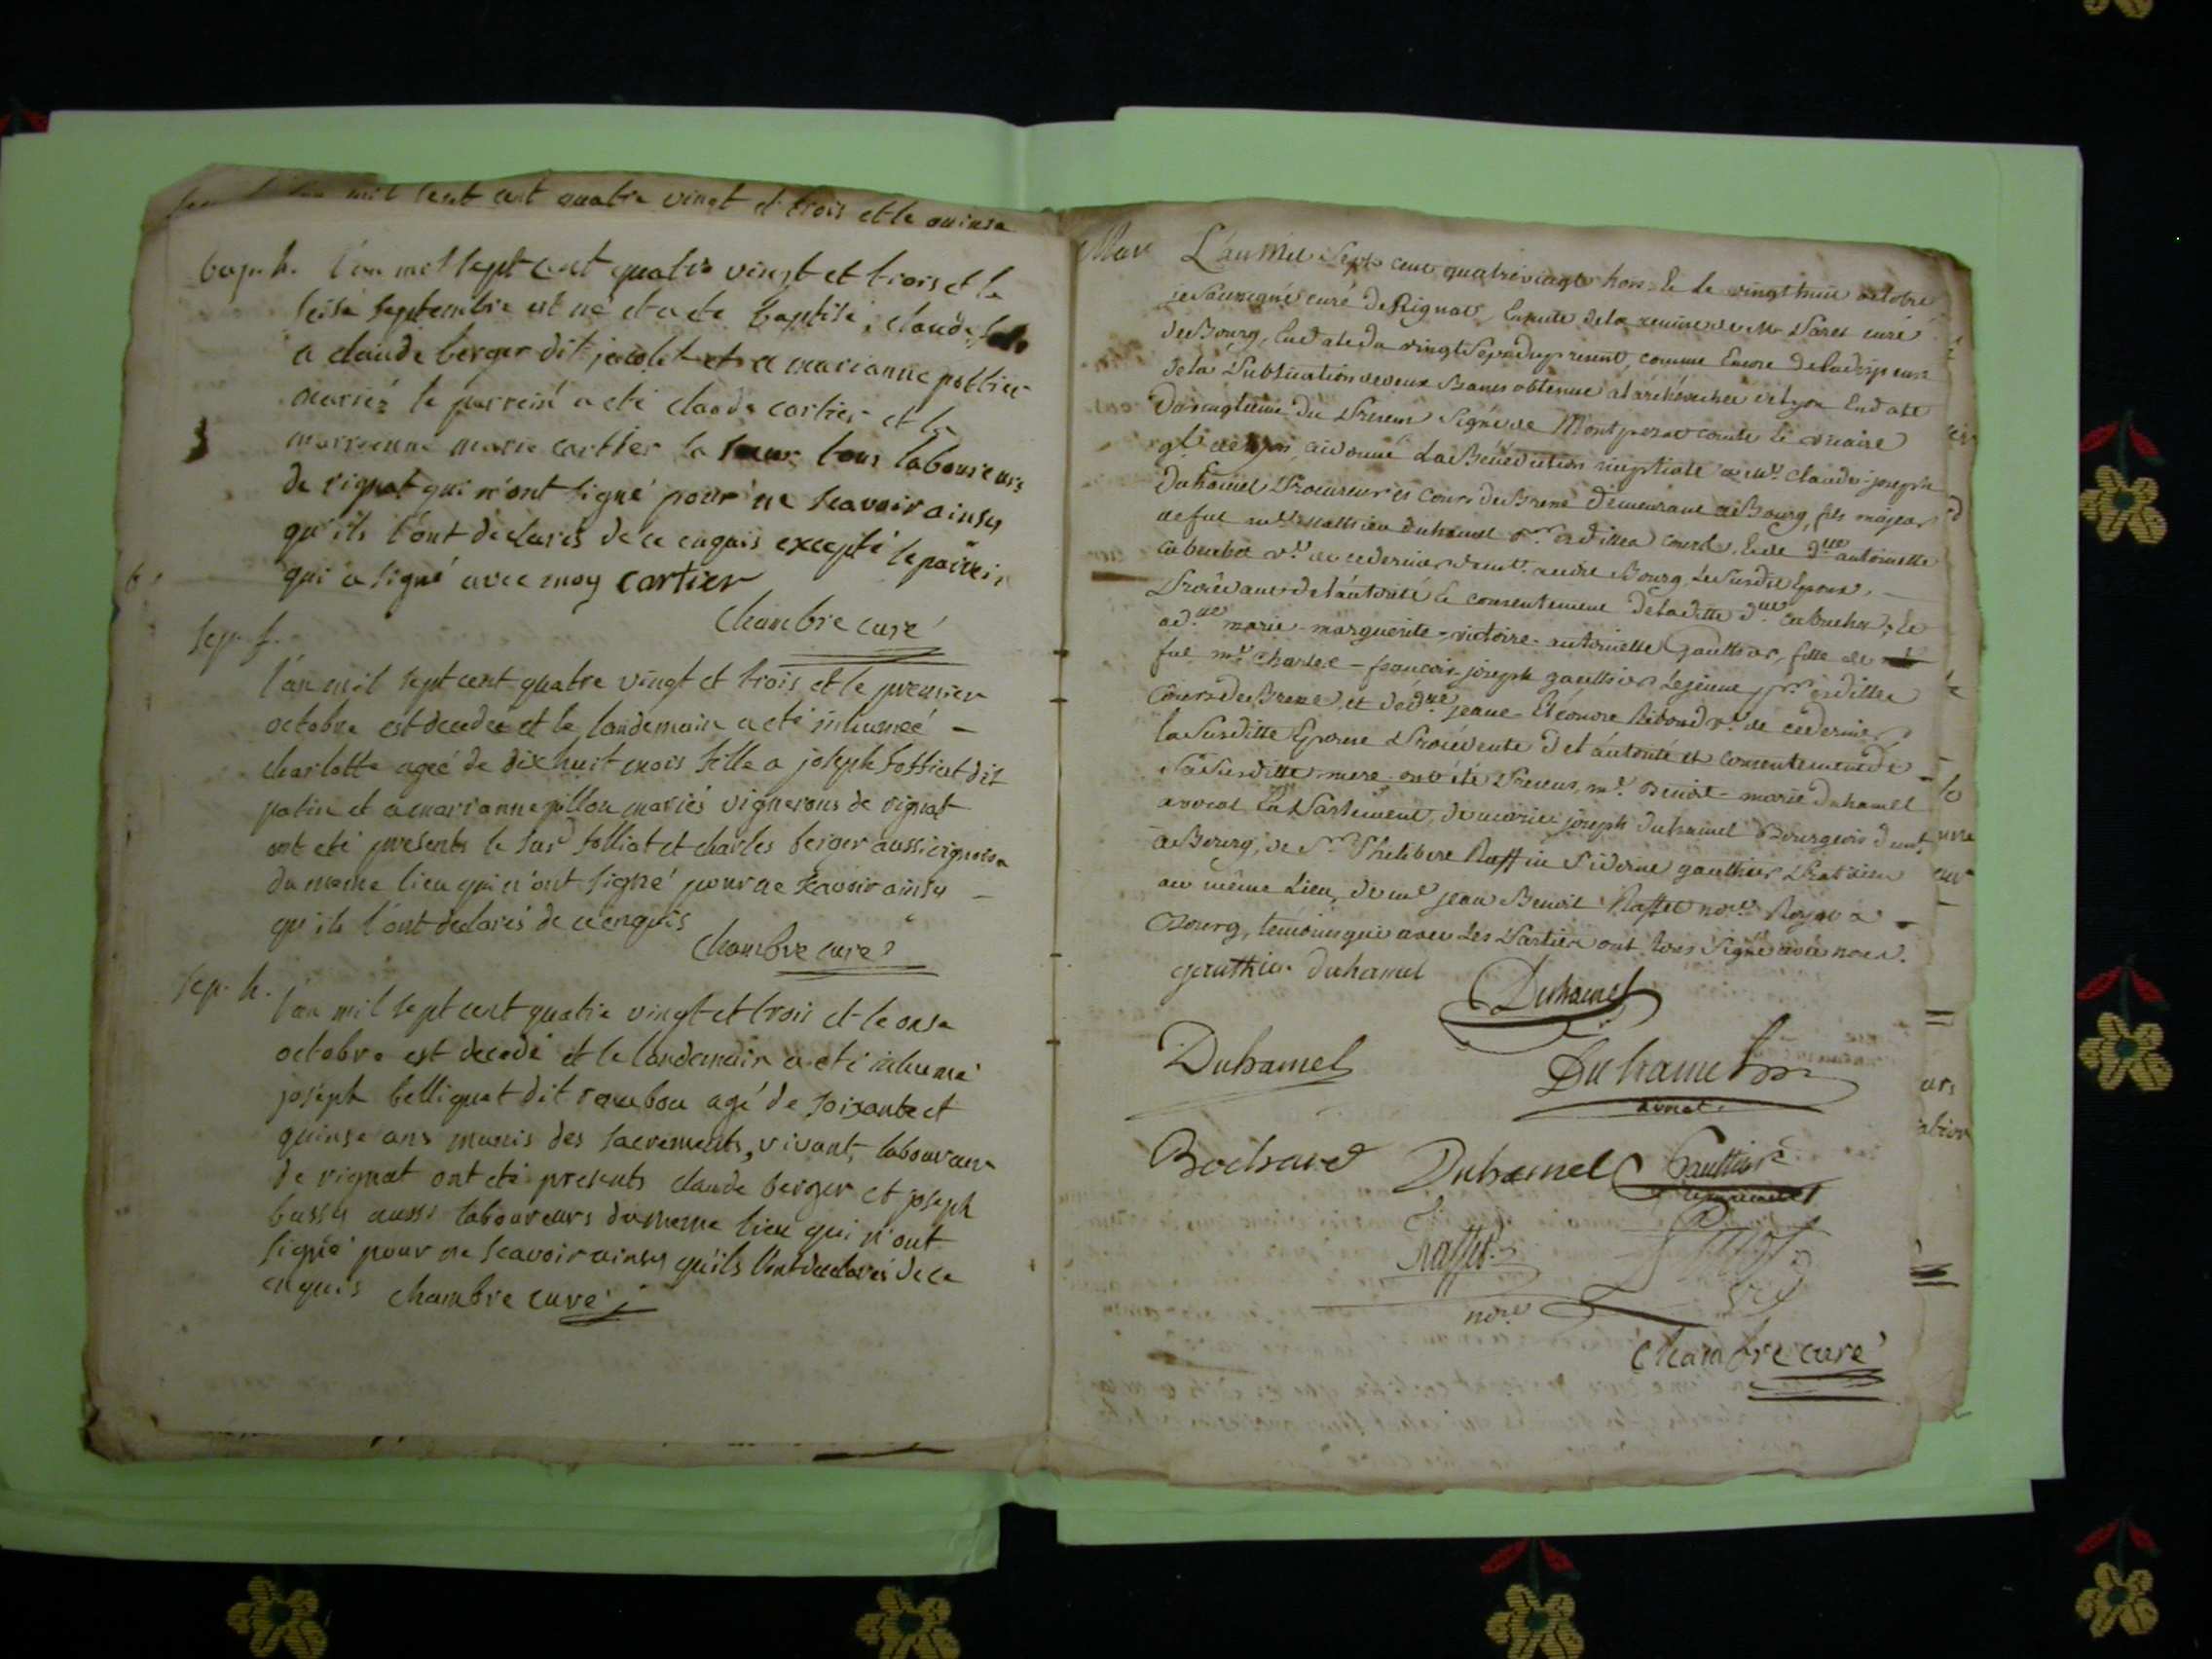 mil sept cent quatre vingt et trois et le quinse
bap. h. l'an mil sept cent quatre vingt et trois et le
seise septembre est né et a ete baptisé, claude, fils
a claude berger dit jacolet et a marianne pottier
mariéz le parrein a eté claude cartier et la
marrienne marie cartier la soeur tous laboureurs
de rignat qui n'ont signé pour ne scavoir ainsy
qu'ils l'ont declarés de ce enquis excepté le parrein
qui a signé avec moy cartier
chambre curé
sep. f.
l'an mil sept cent quatre vingt et trois et le premier
octobre est decedeé et le landemain a eté inhumeé –
charlotte ageé de dix huit mois fille a joseph folliat dit
patin et a marianne pillon mariés vignerons de rignat
ont eté presents le sus d folliat et charles berger aussi vigneron
du meme lieu qui n'ont signé pour ne scavoir ainsy –
qu'ils l'ont declarés de ce enquis
chambre curé
sep. h.
l'an mil sept cent quatre vingt et trois et le onse
octobre est decedé et le landemain a eté inhumé
joseph belliquat dit agé de soixante et
quinse ans munis des sacrements, vivant, laboureur
de rignat ont eté presents claude berger et joseph
bussy aussi laboureurs du meme lieu qui n'ont
signé pour ne scavoir ainsy qu'ils l'ont declarés de ce
enquis chambre curé
Mar L'an Mil Sept cent quatrevingt trois & le vingt huit octobre
je soussigné curé de Rignat, Ensuite de la remise de Mr curé
de Bourg, En date du vingt Sept du present, comme Encore de la dispense
de la Publication de deux Bancs obtenue a l'archévéché de Lyon En date
du vingtieme du Present Signé de Montperoux comte le vicaire
gl. de Lyon, ai donné La Bénédiction nuptiale a Me. Claude-joseph
Duhamel Procureur és Cours de Bresse demeurant a Bourg, fils majeur
de fut Me. mathieu duhamel pr. es dittes Cours, & de dlle antoinette
cabuchet ve. de ce dernier demte. audit Bourg, Le Susdit Epoux. –
Procédant de l'autorité & consentement de laditte dlle cabuchet; &
a dlle marie-marguerite-victoire-antoinette Gauthier, fille de
fut me. Charles-françois-joseph gauthier Lejeune pr. esdittes
Cours de Bresse, et de dlle jeane-Eléonore Riboud ve. de ce dernier,
la Susditte Epouse Procédente de l'autorité et consentement de –
Sa Susditte mere. ont été Presens, me. Benoit-marie duhamel
avocat En Parlement, de marie joseph duhamel Bourgeois demt.
a Bourg, de Sr. Philibert gauthier Praticien
au même Lieu, de me. jean Benoit Raffet nore. Royal a –
Bourg, temoins qui avec Les Parties ont tous Signé avec nous.
gauthier duhamel
Duhamel
Duhamel
Duhamel
avocat.
Bochard Duhamel Gauthier
Raffet
nore
chambre curé